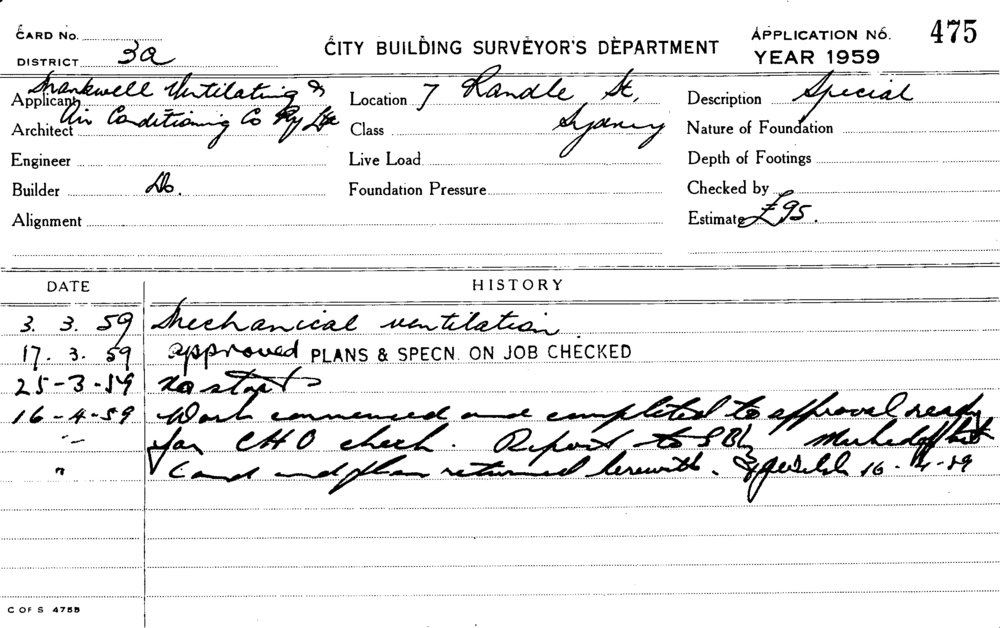 CARD No.
CITY BUILDING SURVEYOR'S DEPARTMENT
APPLICATION NO. 475
DISTRICT 3a
YEAR 1959
Applicant Ventilating &
Architect Air Conditioning Co Pty Ltd
Location 7 Randle St,
Sydney
Class
Description Special
Nature of Foundation
Engineer
Live Load
Depth of Footings
Builder Do.
Foundation Pressure
Checked by
Alignment
Estimate £95.
DATE HISTORY
3. 3. 59 Mechanical ventilation
17. 3. 59 approved PLANS & SPECN. ON JOB CHECKED
25-3-59 no start
16-4-59 Work commenced and completed to approval ready
" for CHO check. Report to
" Card and plan returned herewith. 16-4-59
C OF S 4755